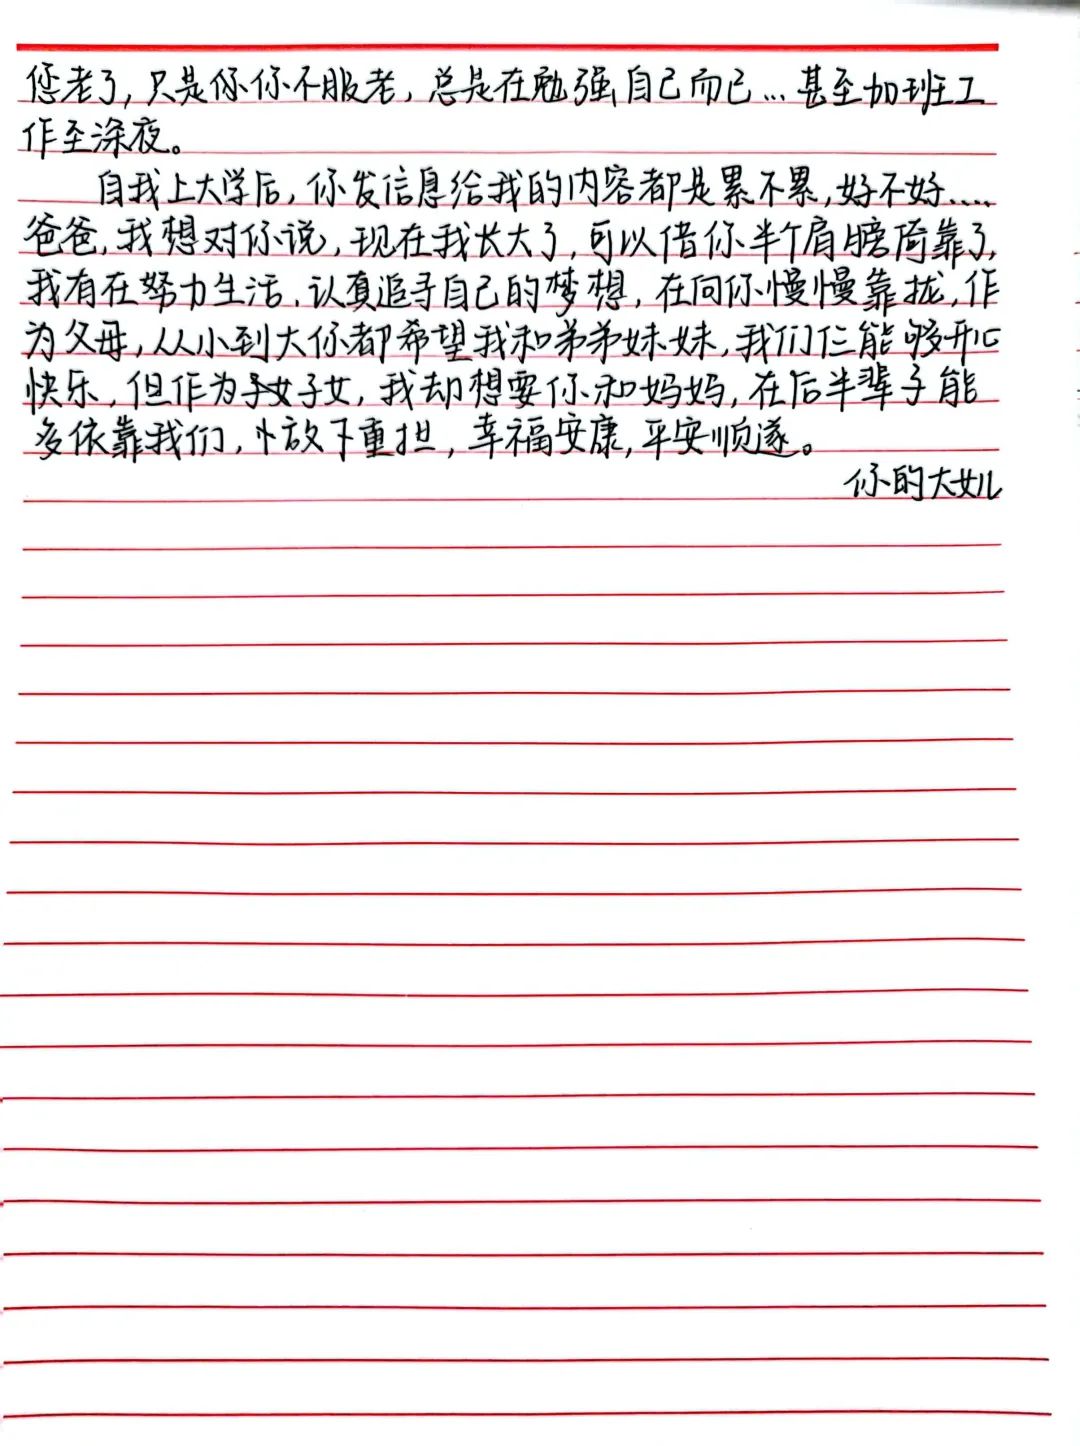 您老了,只是你你不服老,总是在勉强自己而已...甚至加班工
作至深夜。
自我上大学后,你发信息给我的内容都是累不累,好不好....
爸爸,我想对你说,现在我长大了,可以借你半个肩膀倚靠了,
我有在努力生活,认真追寻自己的梦想,在向你慢慢靠拢,作
为父母,从小到大你都希望我和弟弟妹妹,我们仨能够开心
快乐,但作为子女子女,我却想要你和妈妈,在后半辈子能
多依靠我们,放下重担,幸福安康,平安顺遂。
你的大女儿